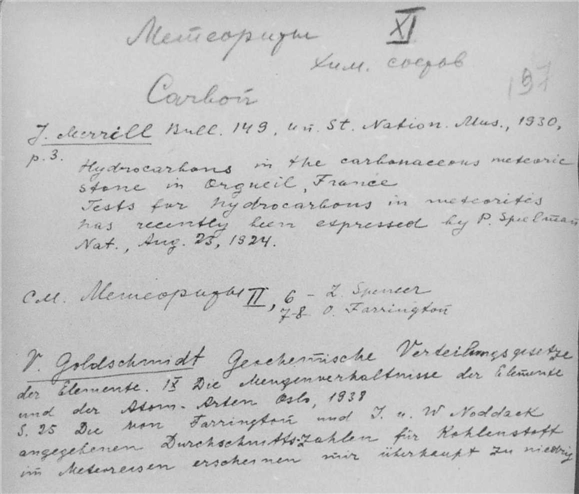 Метеориты XI
хим. состав
197
Carbon
J. Merrill Bull. 149, Un. St. Nation. Mus., 1930,
p. 3.
Hydrocarbons in the carbonaceous meteoric
stone in Orgueil, France
Tests for hydrocarbons in meteorites
has recently been expressed by P. Spielman
Nat., Aug. 23, 1924.
См. Метеориты II, 6 – L. Spencer
78 O. Farrington
V. Goldschmidt Geochemische Verteilungsgesetze
der Elemente. IX Die Mengenverhältnisse der Elemente
und der Atom-Arten Oslo, 1938
S. 25 Die von Farrington und I. u. W Noddack
angegebenen Durchschnitts-Zahlen für Kohlenstoff
im Meteoreisen erscheinen mir überhaupt zu niedrig